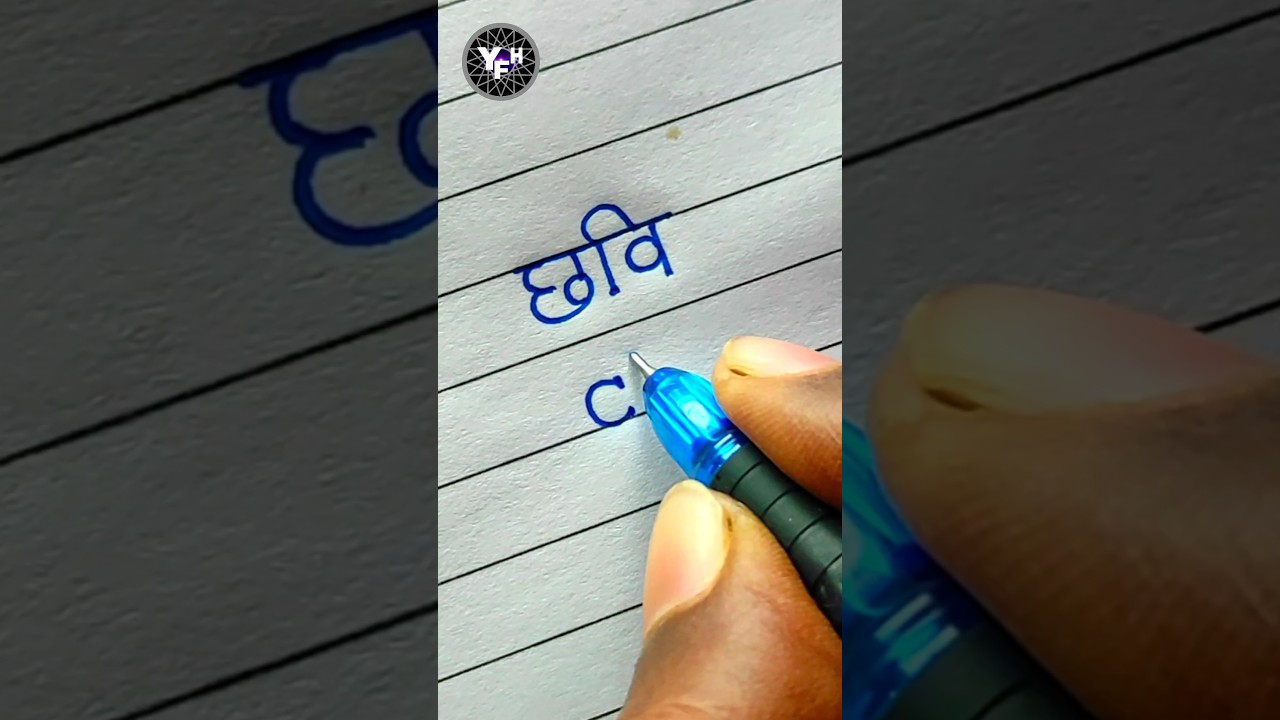 YFH
छवि
c